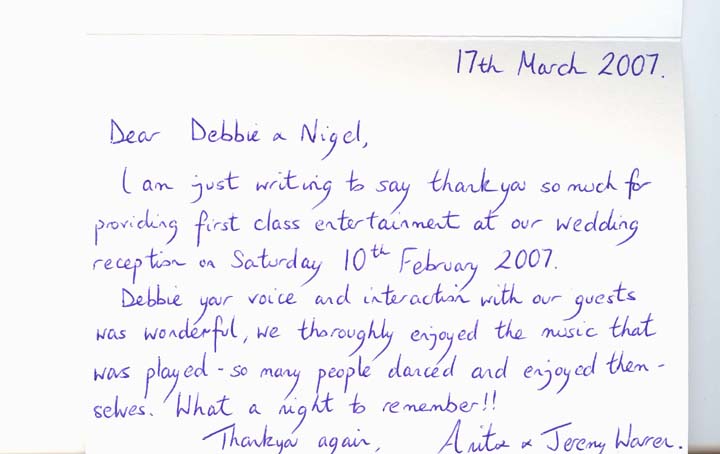 17th March 2007.
Dear Debbie & Nigel,
I am just writing to say thankyou so much for
providing first class entertainment at our wedding
reception on Saturday 10th February 2007.
Debbie your voice and interaction with our guests
was wonderful, we thoroughly enjoyed the music that
was played - so many people danced and enjoyed them-
selves. What a night to remember!!
Thankyou again, Anita & Jeremy Warren.